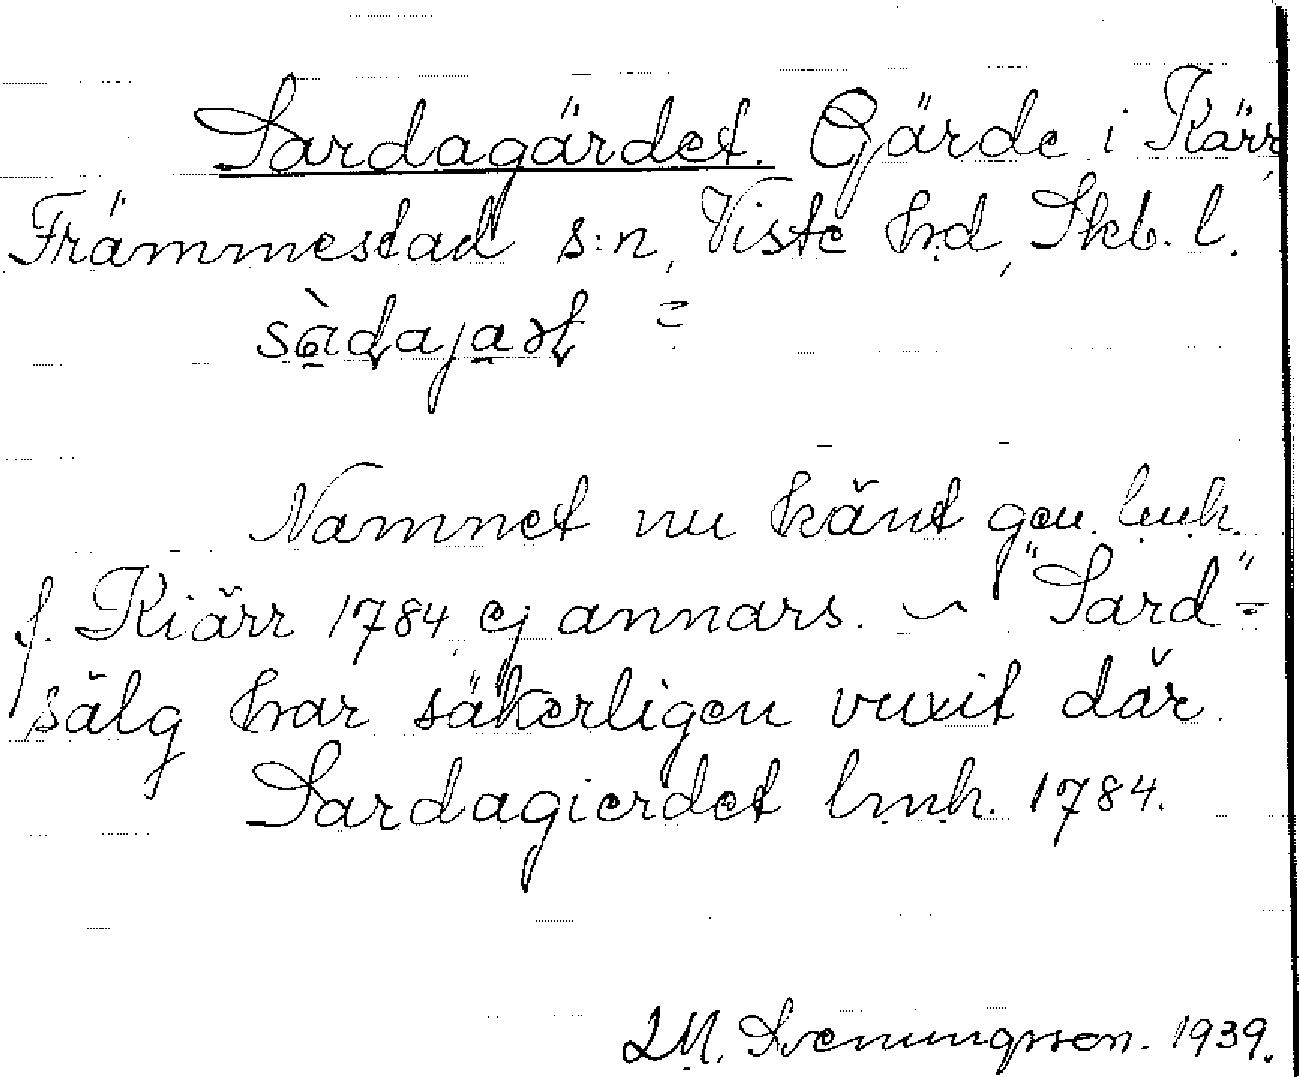 Sardagärdet. Gärde i Kärr,
Främmestad s:n, Viste hd, Skb. l.
Namnet nu känt gen. lmh.
f. Kiärr 1784, ej annars. ~ "Sard"=
sälg har säkerligen vuxit där.
Sardagierdet lmh. 1784.
Svenungsson. 1939.